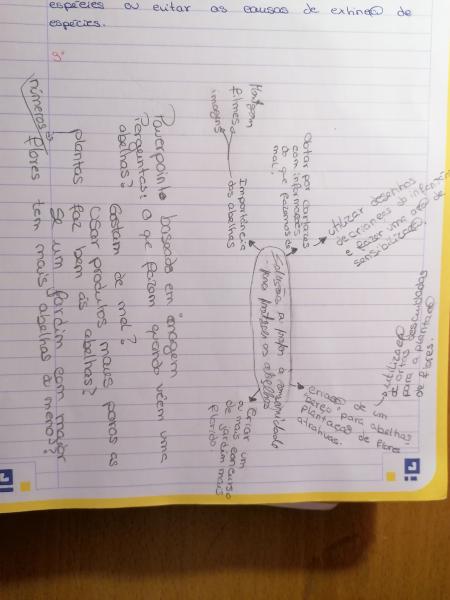 espécies ou evitar as causas de extinção de
espécies.
Soluções a propor à comunidade
para proteger as abelhas
Importância
das abelhas
filmes
imagens
Optar por cartazes
com informações
do que fazemos de
mal.
utilizar desenhos
de crianças do infantário
e fazer uma ação de
sensibilização.
criação de um
para abelhas,
plantação de flora
atrativas.
utilização
de hortas descuidadas
para a plantação
de flores.
criar um
ou mais concurso
de jardim mais
florido.
Powerpoint baseado em imagem
Perguntas: O que fazem quando vêem uma
abelha?
Gostam de mel?
Usar produtos maus para as
plantas faz bem às abelhas?
Se um jardim com maior
números flores tem mais abelhas ou menos?